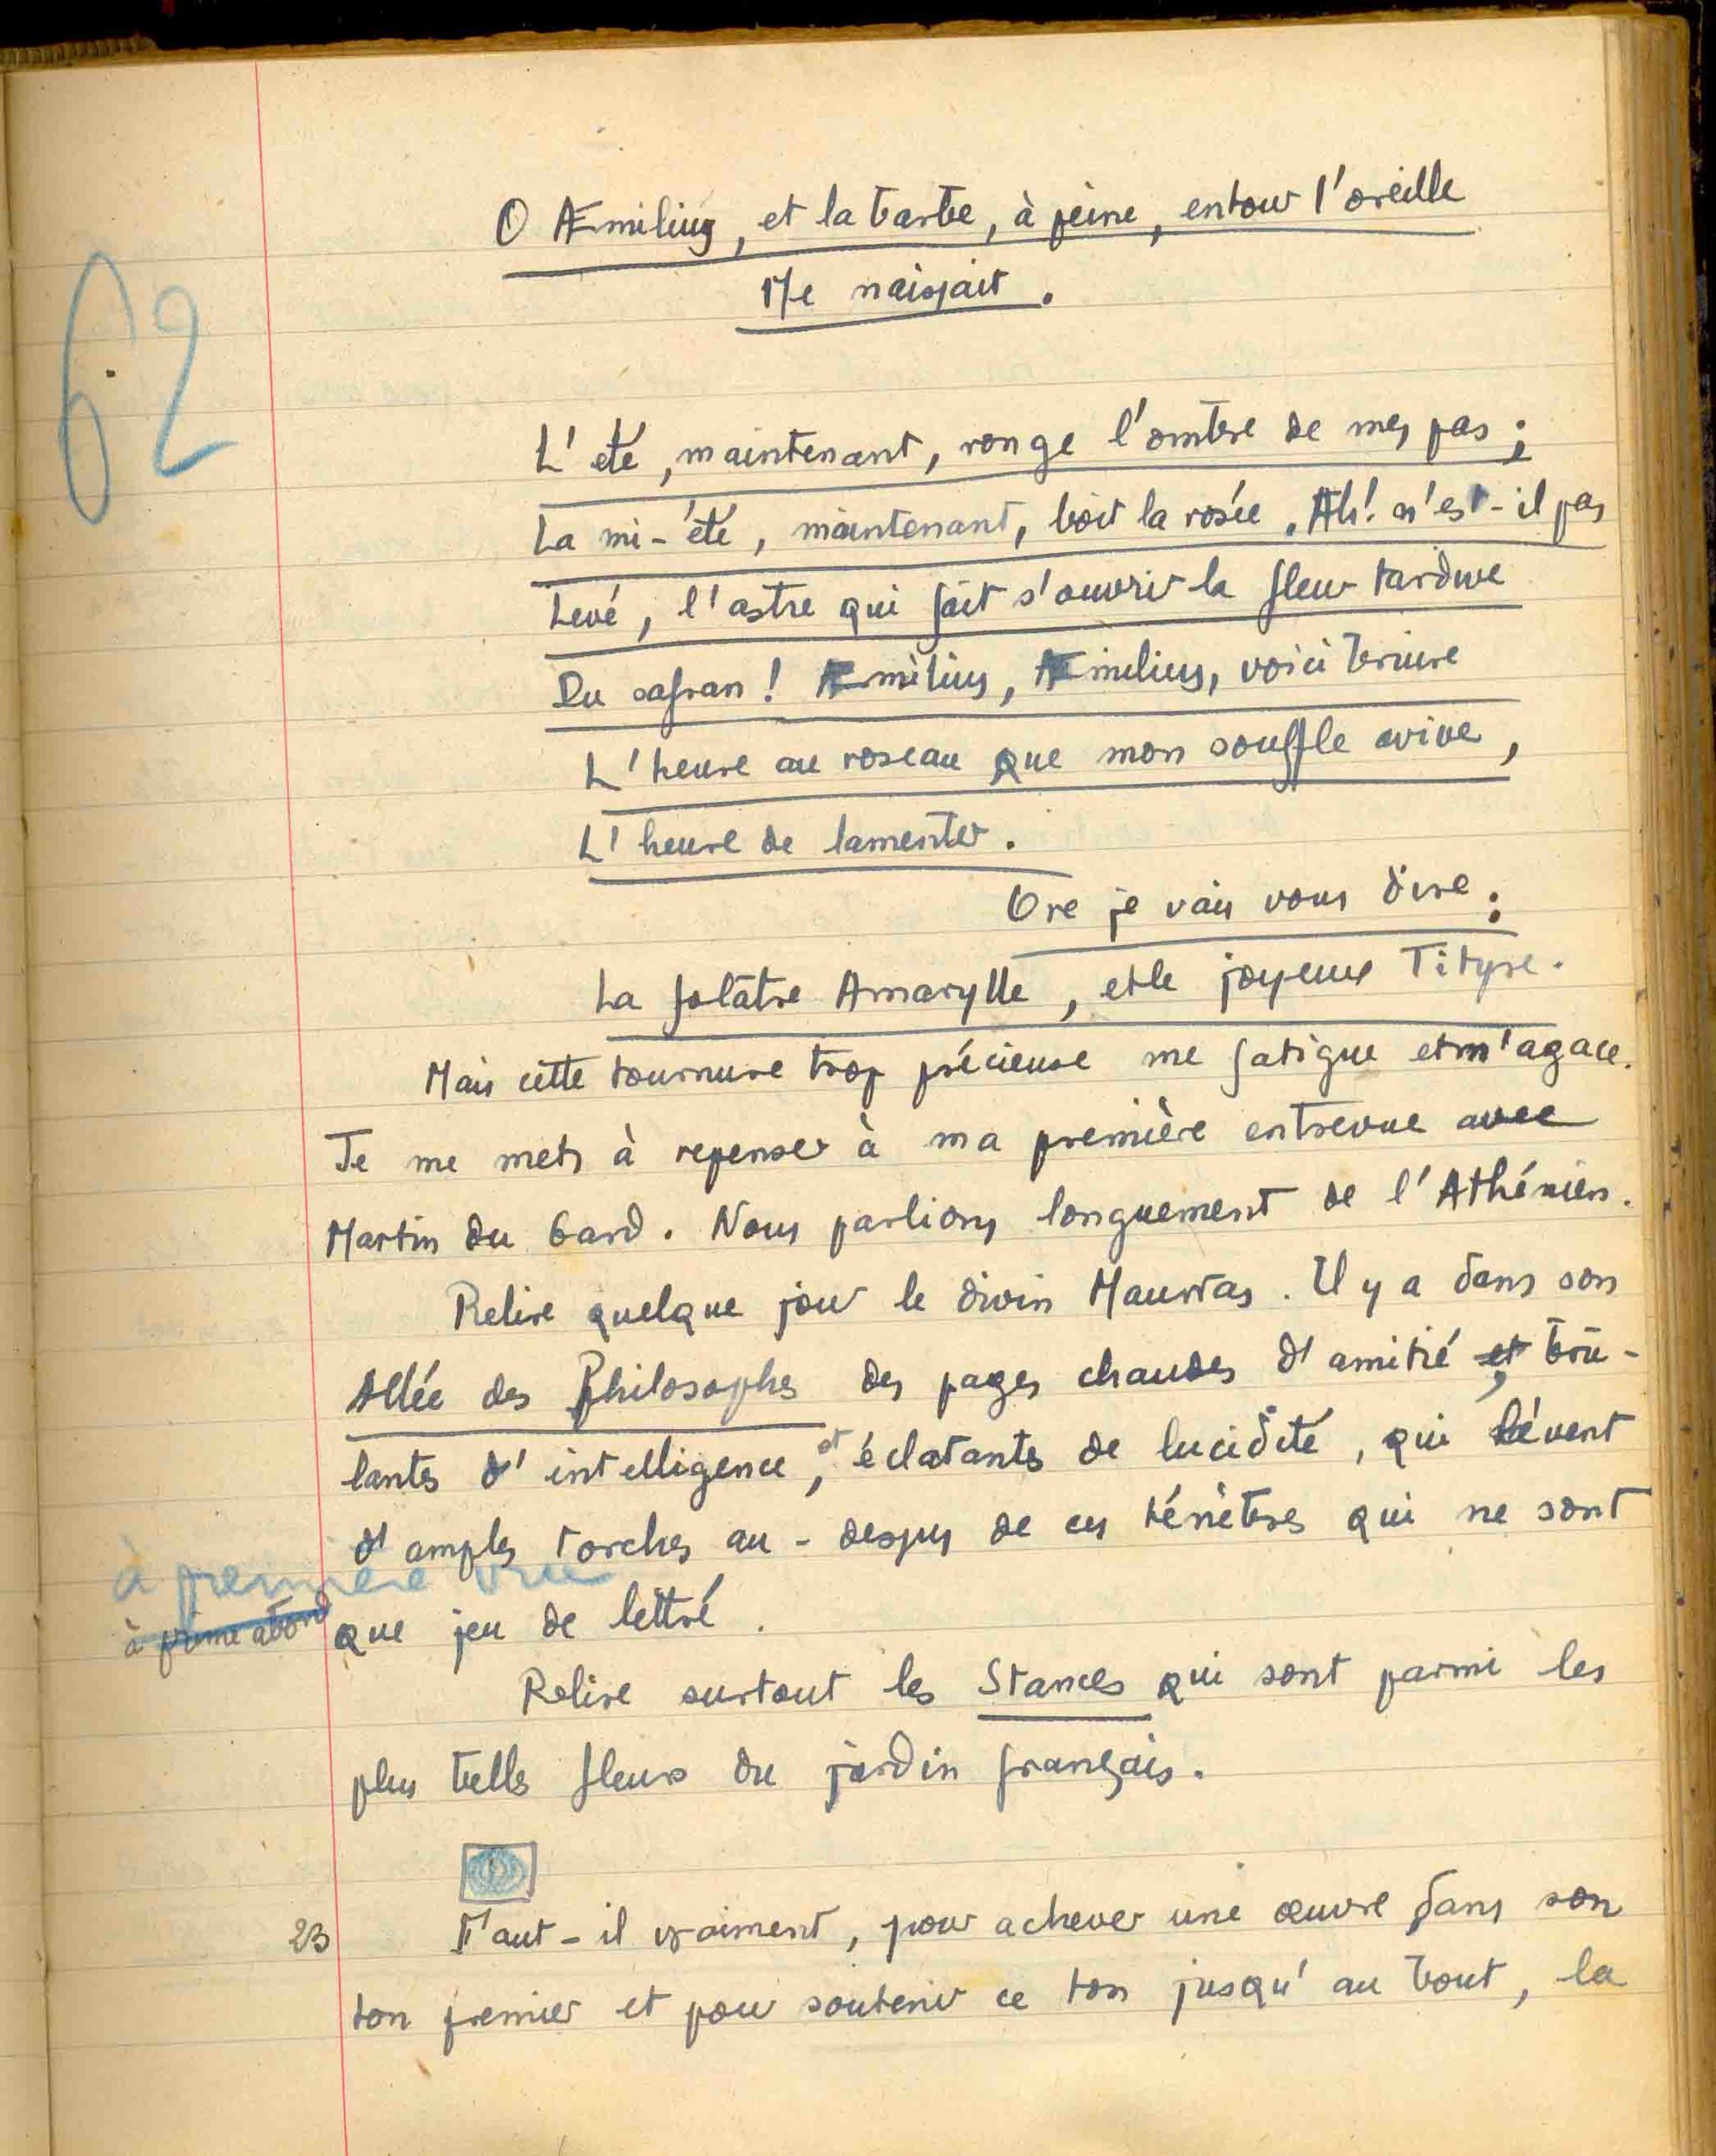 62
O Æmilius, et la barbe, à peine, entour l'oreille
Me naissait.
L'été, maintenant, ronge l'ombre de mes pas ;
La mi-été, maintenant, boit la rosée. Ah! n'est-il pas
Levé, l'astre qui fait s'ouvrir la fleur tardive
Du safran ! Æmilius, Æmilius, voici bruire
L'heure au roseau que mon souffle avive,
L'heure de lamenter.
Ore je vais vous dire :
La folâtre Amarylle, et le joyeux Tityre.
Mais cette tournure trop précieuse me fatigue et m'agace.
Je me mets à repenser à ma première entrevue avec
Martin du Gard. Nous parlions longuement de l'Athénien.
Relire quelque jour le divin Maurras. Il y a dans son
Allée des Philosophes des pages chaudes d'amitié et, brû-
lantes d'intelligence, et éclatantes de lucidité, qui lèvent
d'amples torches au-dessus de ces ténèbres qui ne sont
à première vue
à prime abord que jeu de lettré.
Relire surtout les Stances qui sont parmi les
plus belles fleurs du jardin français.
23 Faut-il vraiment, pour achever une œuvre dans son
ton premier et pour soutenir ce ton jusqu'au bout, la